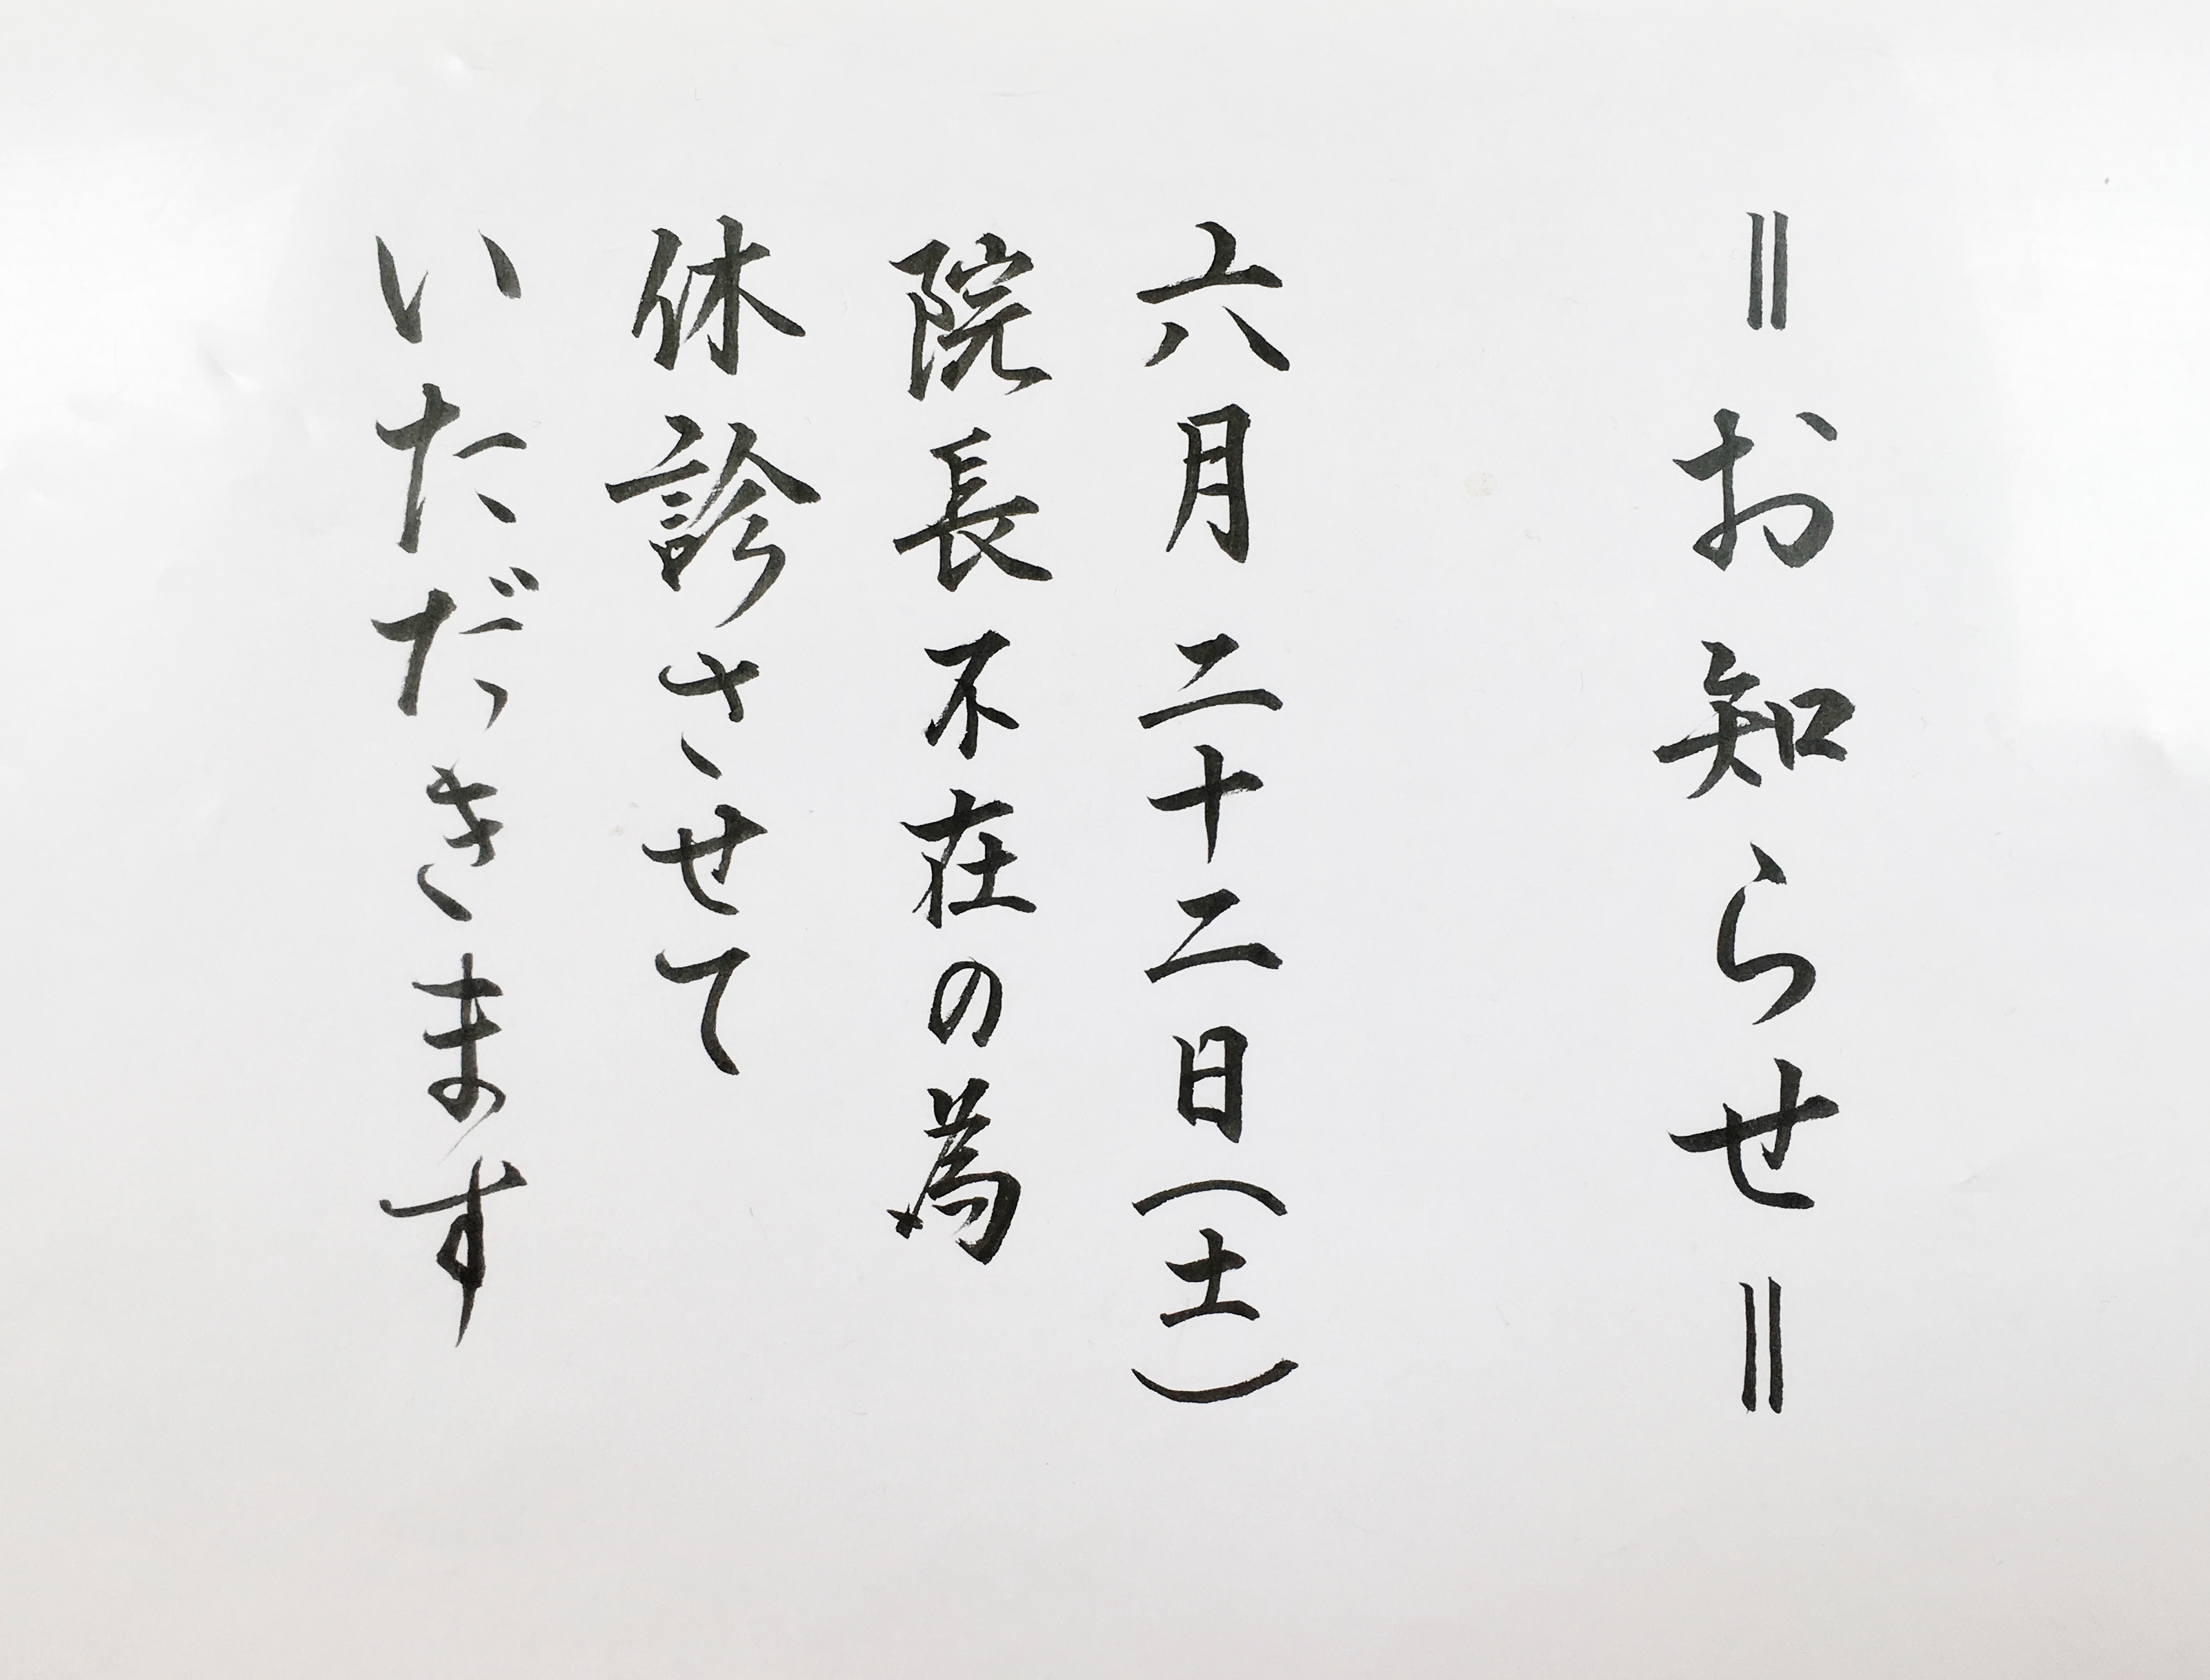 ＝お知らせ＝
六月二十二日（土）
院長不在の為
休診させて
いただきます